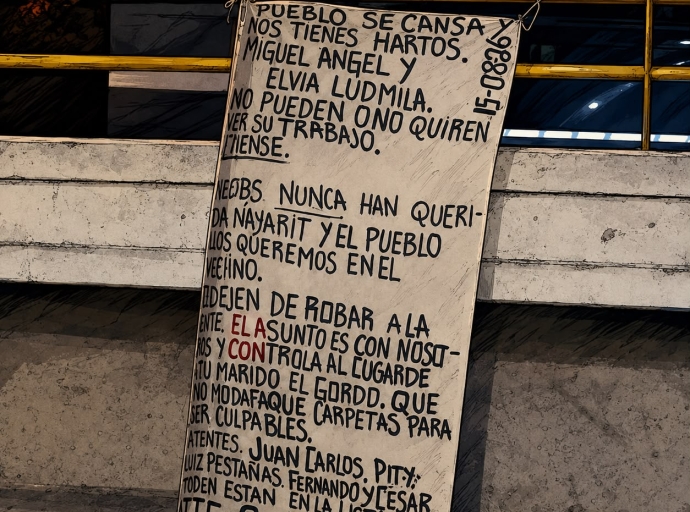 PUEBLO SE CANSA Y
NOS TIENES HARTOS.
MIGUEL ANGEL Y
ELVIA LUDMILA.
NO PUEDEN O NO QUIREN
VER SU TRABAJO.
NUNCA HAN QUERI-
DA NAYARIT Y EL PUEBLO
QUEREMOS EN EL
DEJEN DE ROBAR A LA
EL ASUNTO ES CON NOSOT-
ROS Y CONTROLA AL CUGARDE
TU MARIDO EL GORDO. QUE
NO MODAFAQUE CARPETAS PARA
SER CULPABLES.
ATENTES. JUAN CARLOS, PITY,
LUIZ PESTAÑAS, FERNANDO Y CESAR
TODEN ESTAN EN LA